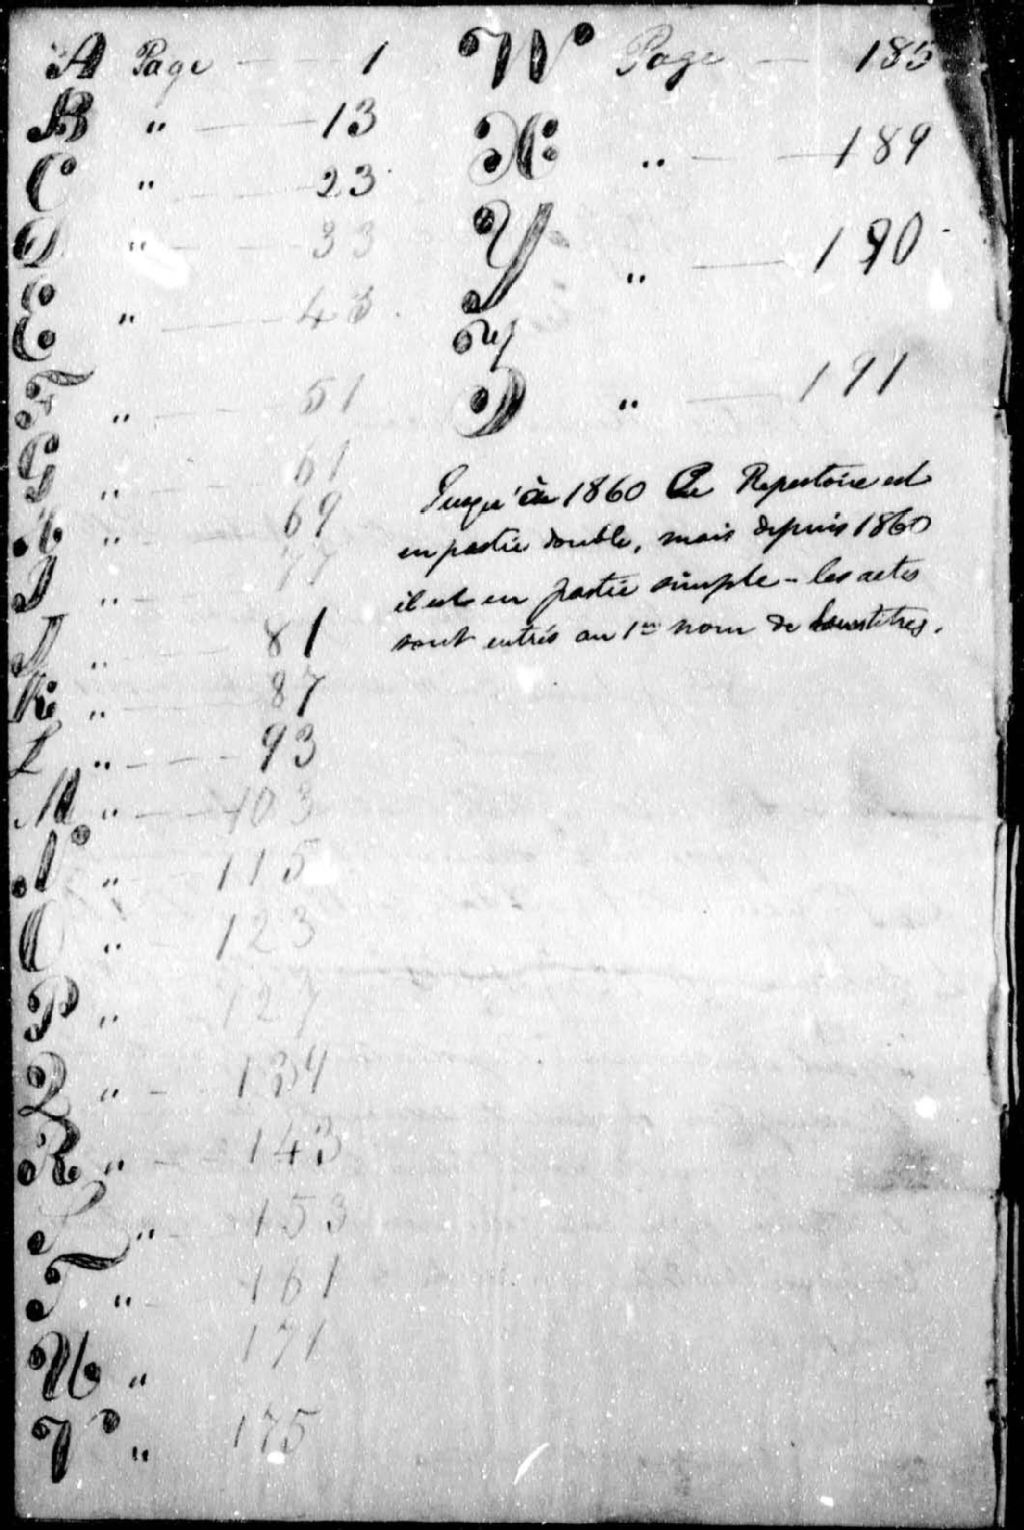 A Page 1
B " 13
C " 23
D " 33
E " 43
F " 51
G " 61
H " 69
I " 77
J " 81
K " 87
L " 93
M " 103
N " 115
O " 123
P " 127
Q " 134
R " 143
S " 153
T " 161
U " 171
V " 175
W Page 185
X " 189
Y " 190
Z " 191
Jusqu'à 1860 Le Repertoire est
en partie double, mais depuis 1860
il est en partie simple - les actes
sont entrés au 1er nom de